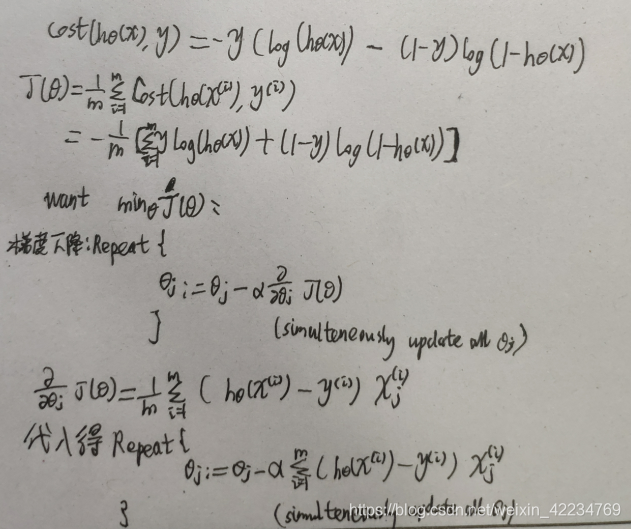 Cost(hθ(x), y) = -y (log(hθ(x)) - (1-y)log(1-hθ(x))
J(θ)=1/m ∑_{i=1}^{m} Cost(hθ(x^(i)), y^(i))
= -1/m [∑_{i=1}^{m} y log(hθ(x)) + (1-y) log(1-hθ(x))]
want min_θ J(θ):
梯度下降:Repeat {
θ_j := θ_j - α ∂/∂θ_j J(θ)
} (simulteneously update all θ_j)
∂/∂θ_j J(θ)=1/m ∑_{i=1}^{m} ( hθ(x^(i)) - y^(i)) x_j^(i)
代入得 Repeat{
θ_j := θ_j - α ∑_{i=1}^{m} (hθ(x^(i)) - y^(i)) x_j^(i)
} (simulteneously update all θ_j)
https://blog.csdn.net/weixin_42234769